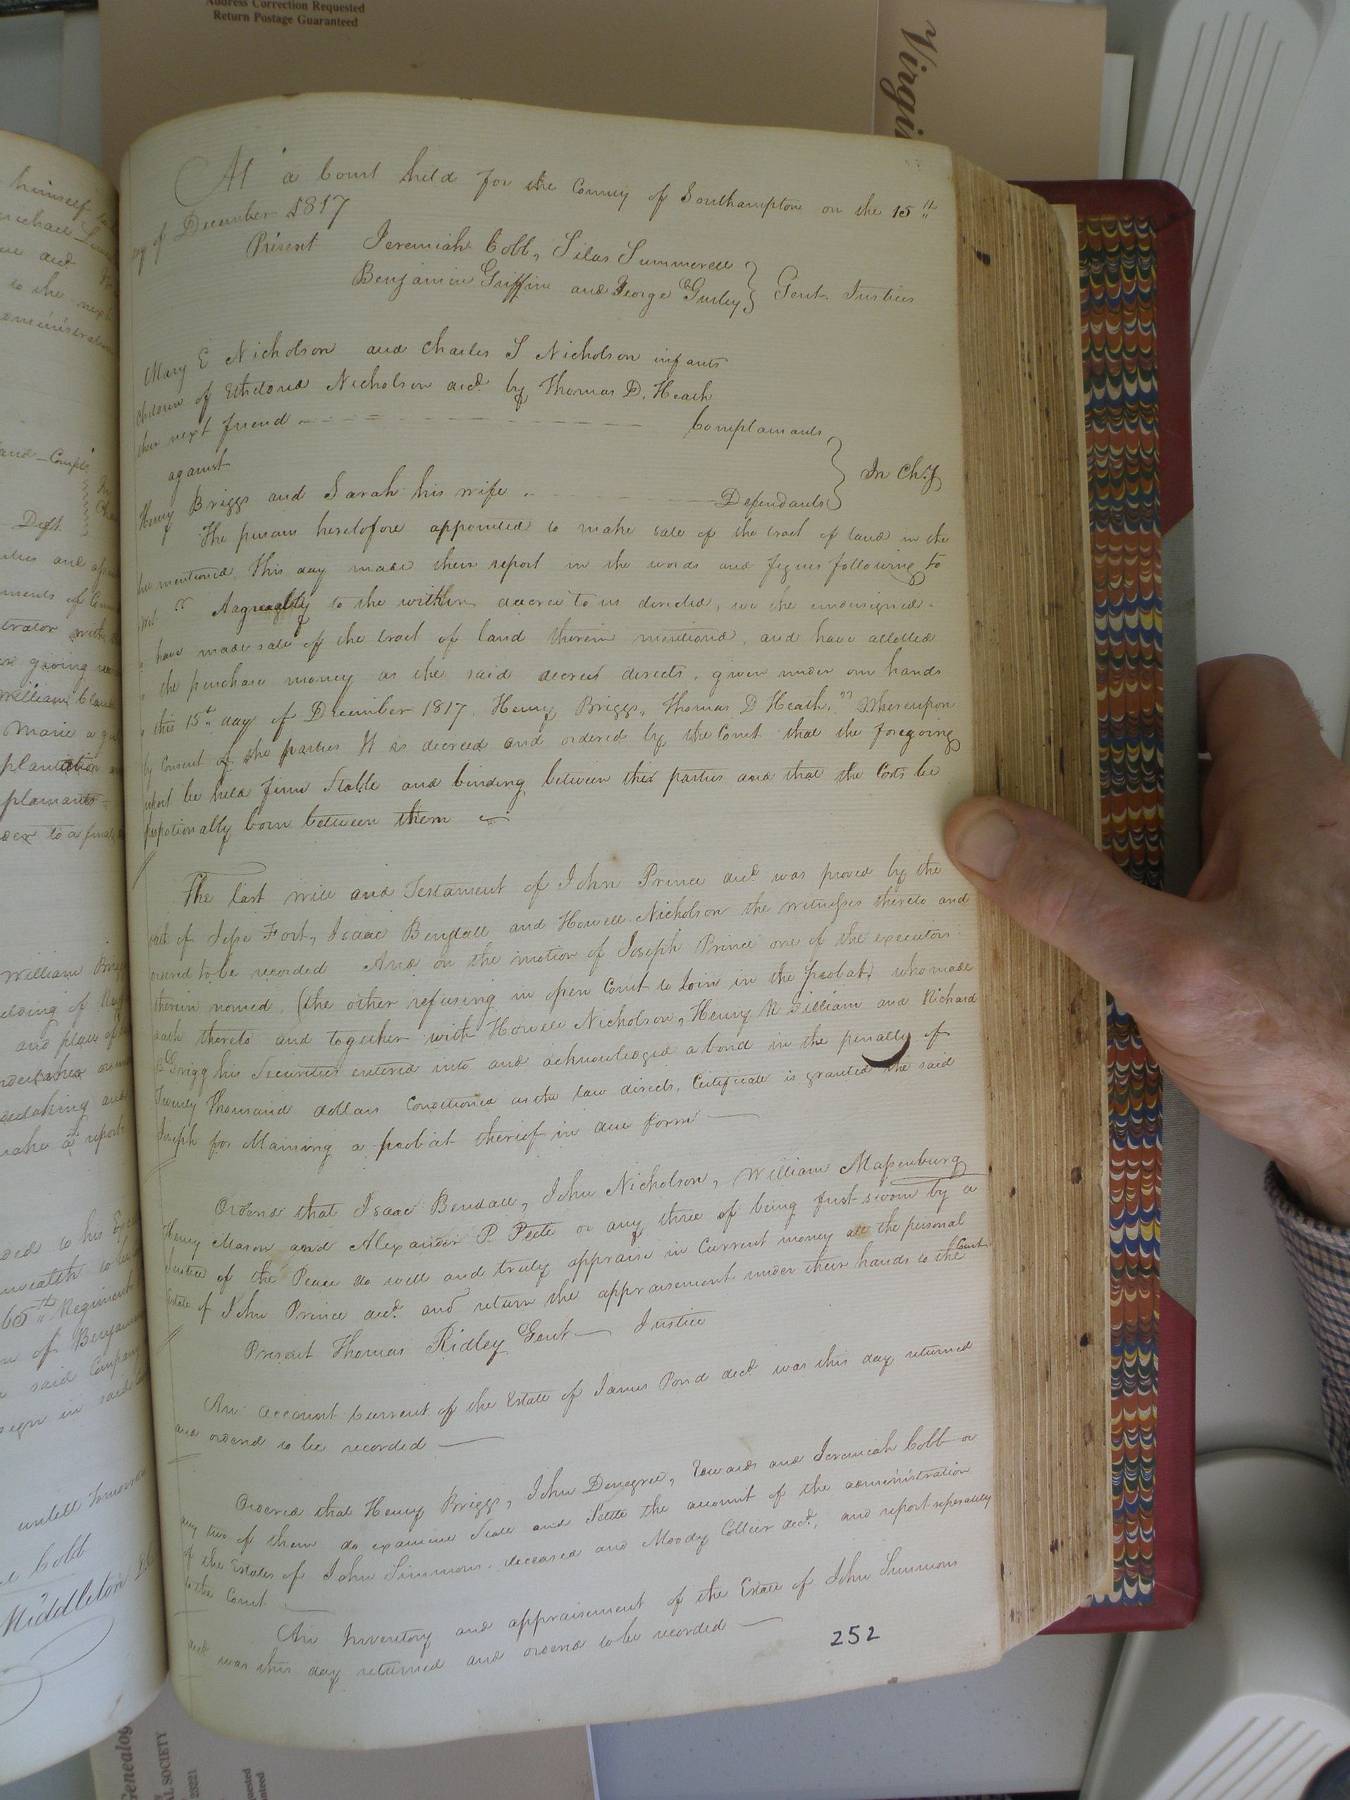 Address Correction Requested
Return Postage Guaranteed
Virgin
At a Court held for the County of Southampton on the 15th
day of December 1817
Present Jeremiah Cobb, Silas Summerell
Benjamin Griffin and George Gurley } Gent. Justices
Mary E Nicholson and Charles S Nicholson infants
children of Etheldred Nicholson decd by Thomas D. Heath
their next friend Complainants
against } In Chy
Henry Briggs and Sarah his wife Defendants
The persons heretofore appointed to make sale of the tract of land in the
mentioned, this day made their report in the words and figures following to
wit " Agreeably to the within decree to us directed, we the undersigned
" have made sale of the tract of land therein mentioned, and have allotted
" the purchase money as the said decree directs, given under our hands
" this 15th day of December 1817. Henry Briggs, Thomas D Heath." Whereupon
by consent of the parties It is decreed and ordered by the Court that the foregoing
report be held firm Stable and binding between the parties and that the Costs be
propotionally born between them
The last will and Testament of John Prince decd was proved by the
oath of Jesse Fort, Isaac Bendall and Howell Nicholson the witnesses thereto and
ordered to be recorded And on the motion of Joseph Prince one of the executors
therein named, (the other refusing in open Court to Join in the probat) who made
oath thereto and together with Howell Nicholson, Henry N. Gilliam and Richard
E Grigg his Securities entered into and acknowledged a bond in the penalty of
Twenty thousand dollars Conditioned as the law directs, Certificate is granted the said
Joseph for Obtaining a probat thereof in due form
Ordered that Isaac Bendall, John Nicholson, William Massenburg
Henry Mason and Alexander P. Peete or any three of being first sworn by a
Justice of the Peace do well and truly appraise in Current money all the personal
Estate of John Prince decd. and return the appraisement under their hands to the Court
Present Thomas Ridley Gent Justice
An account Current of the Estate of James Pond decd was this day returned
and ordered to be recorded
Ordered that Henry Briggs, John Denegre, Edwards and Jeremiah Cobb or
any two of them do examine State and Settle the amount of the administration
of the Estates of John Simmons deceased and Moody Collier decd, and report seperately
to the Court
An Inventory and appraisement of the Estate of John Simmons
decd was this day returned and ordered to be recorded
252
himself
Michael
to the next
administration
land Compl
Deft
William
plantation
plainants
to a final
William
and place of
report
65th Regiment
of Benjamin
said Company
sign in said
untill Tomorrow
Cobb
Middleton
Genealog
AL SOCIETY
23221